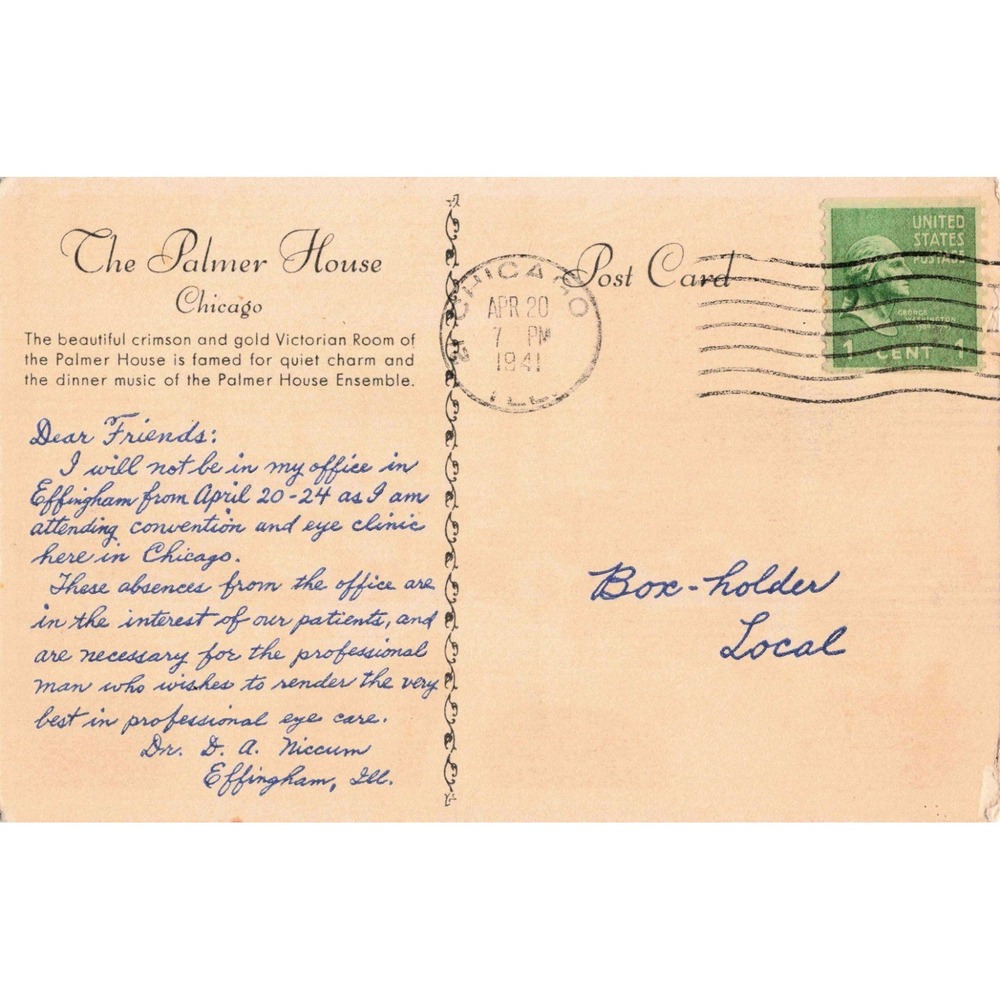 The Palmer House
Chicago
The beautiful crimson and gold Victorian Room of
the Palmer House is famed for quiet charm and
the dinner music of the Palmer House Ensemble.
Dear Friends:
I will not be in my office in
Effingham from April 20-24 as I am
attending convention and eye clinic
here in Chicago.
These absences from the office are
in the interest of our patients, and
are necessary for the professional
man who wishes to render the very
best in professional eye care.
Dr. D. A. Niccum
Effingham, Ill.
Post Card
CHICAGO
APR 20
7 PM
1941
ILL.
UNITED
STATES
POSTAGE
GEORGE
WASHINGTON
1 CENT 1
Box-holder
Local